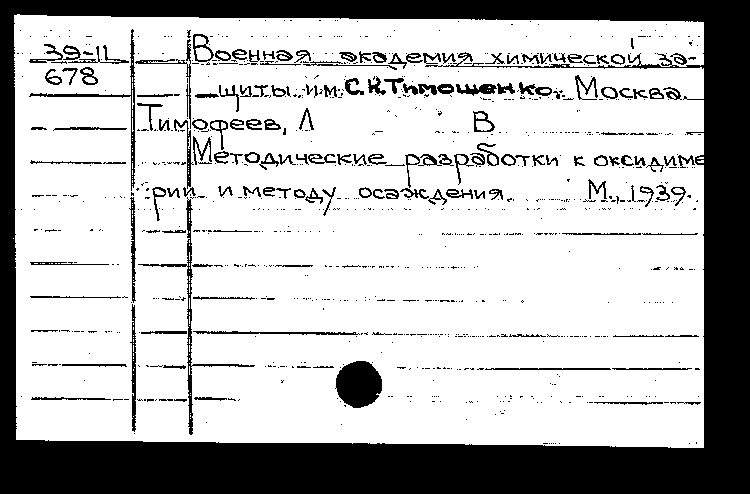 39-11 Военная академия химической за-
678 щиты им. С.К.Тимошенко. Москва.
Тимофеев, Л В
Методические разработки к оксидиме
рии и методу осаждения. М., 1939.